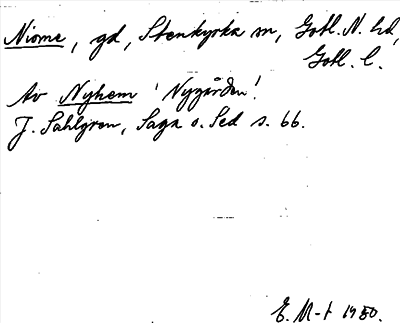 Niome, gd, Stenkyrka sn, Gotl. N. hd,
Gotl. l.
Av Nyhem 'Nygården'.
J. Sahlgren, Saga o. Sed s. 66.
E. M-t 1950.